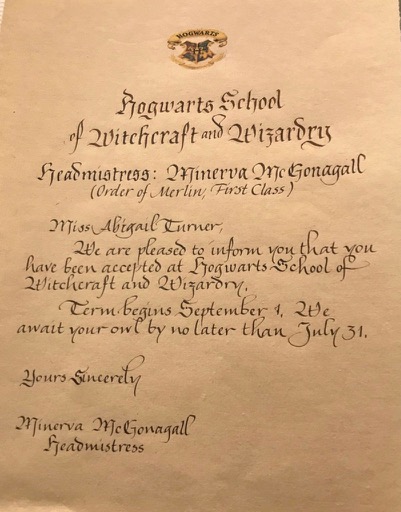 HOGWARTS
Hogwarts School
of Witchcraft and Wizardry
Headmistress: Minerva McGonagall
(Order of Merlin, First Class)
Miss Abigail Turner,
We are pleased to inform you that you
have been accepted at Hogwarts School of
Witchcraft and Wizardry.
Term begins September 1. We
await your owl by no later than July 31.
Yours Sincerely
Minerva McGonagall
Headmistress